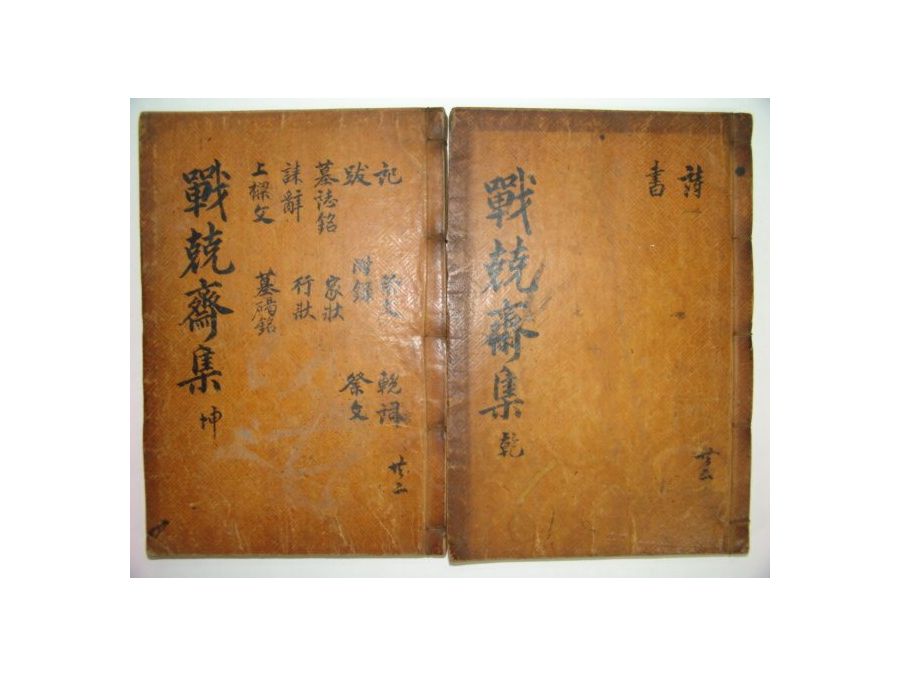 詩
書
共二
戰兢齋集 乾
記
跋
墓誌銘
誄辭
上樑文
祭文
附錄
家狀
行狀
墓碣銘
輓詞
祭文
共二
戰兢齋集 坤